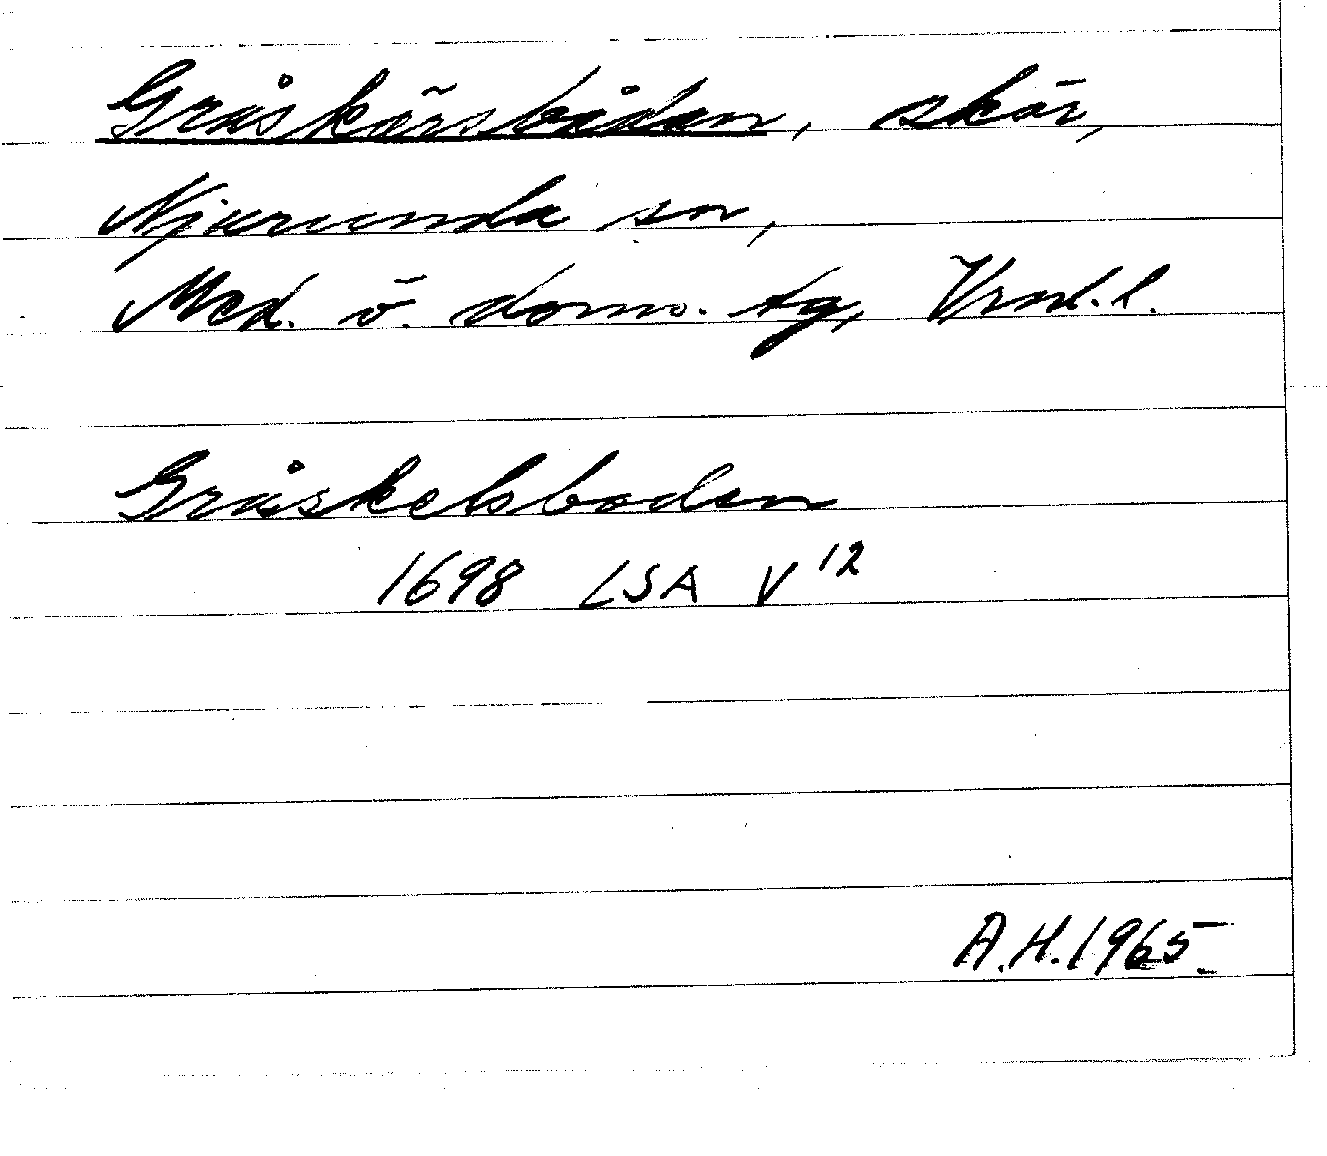 Gråskärsbådan, skär,
Njurunda sn,
Med. ö. doms. tg, Vrnl. l.
Gråskelsboden
1698 LSA V 12
A.H. 1965.